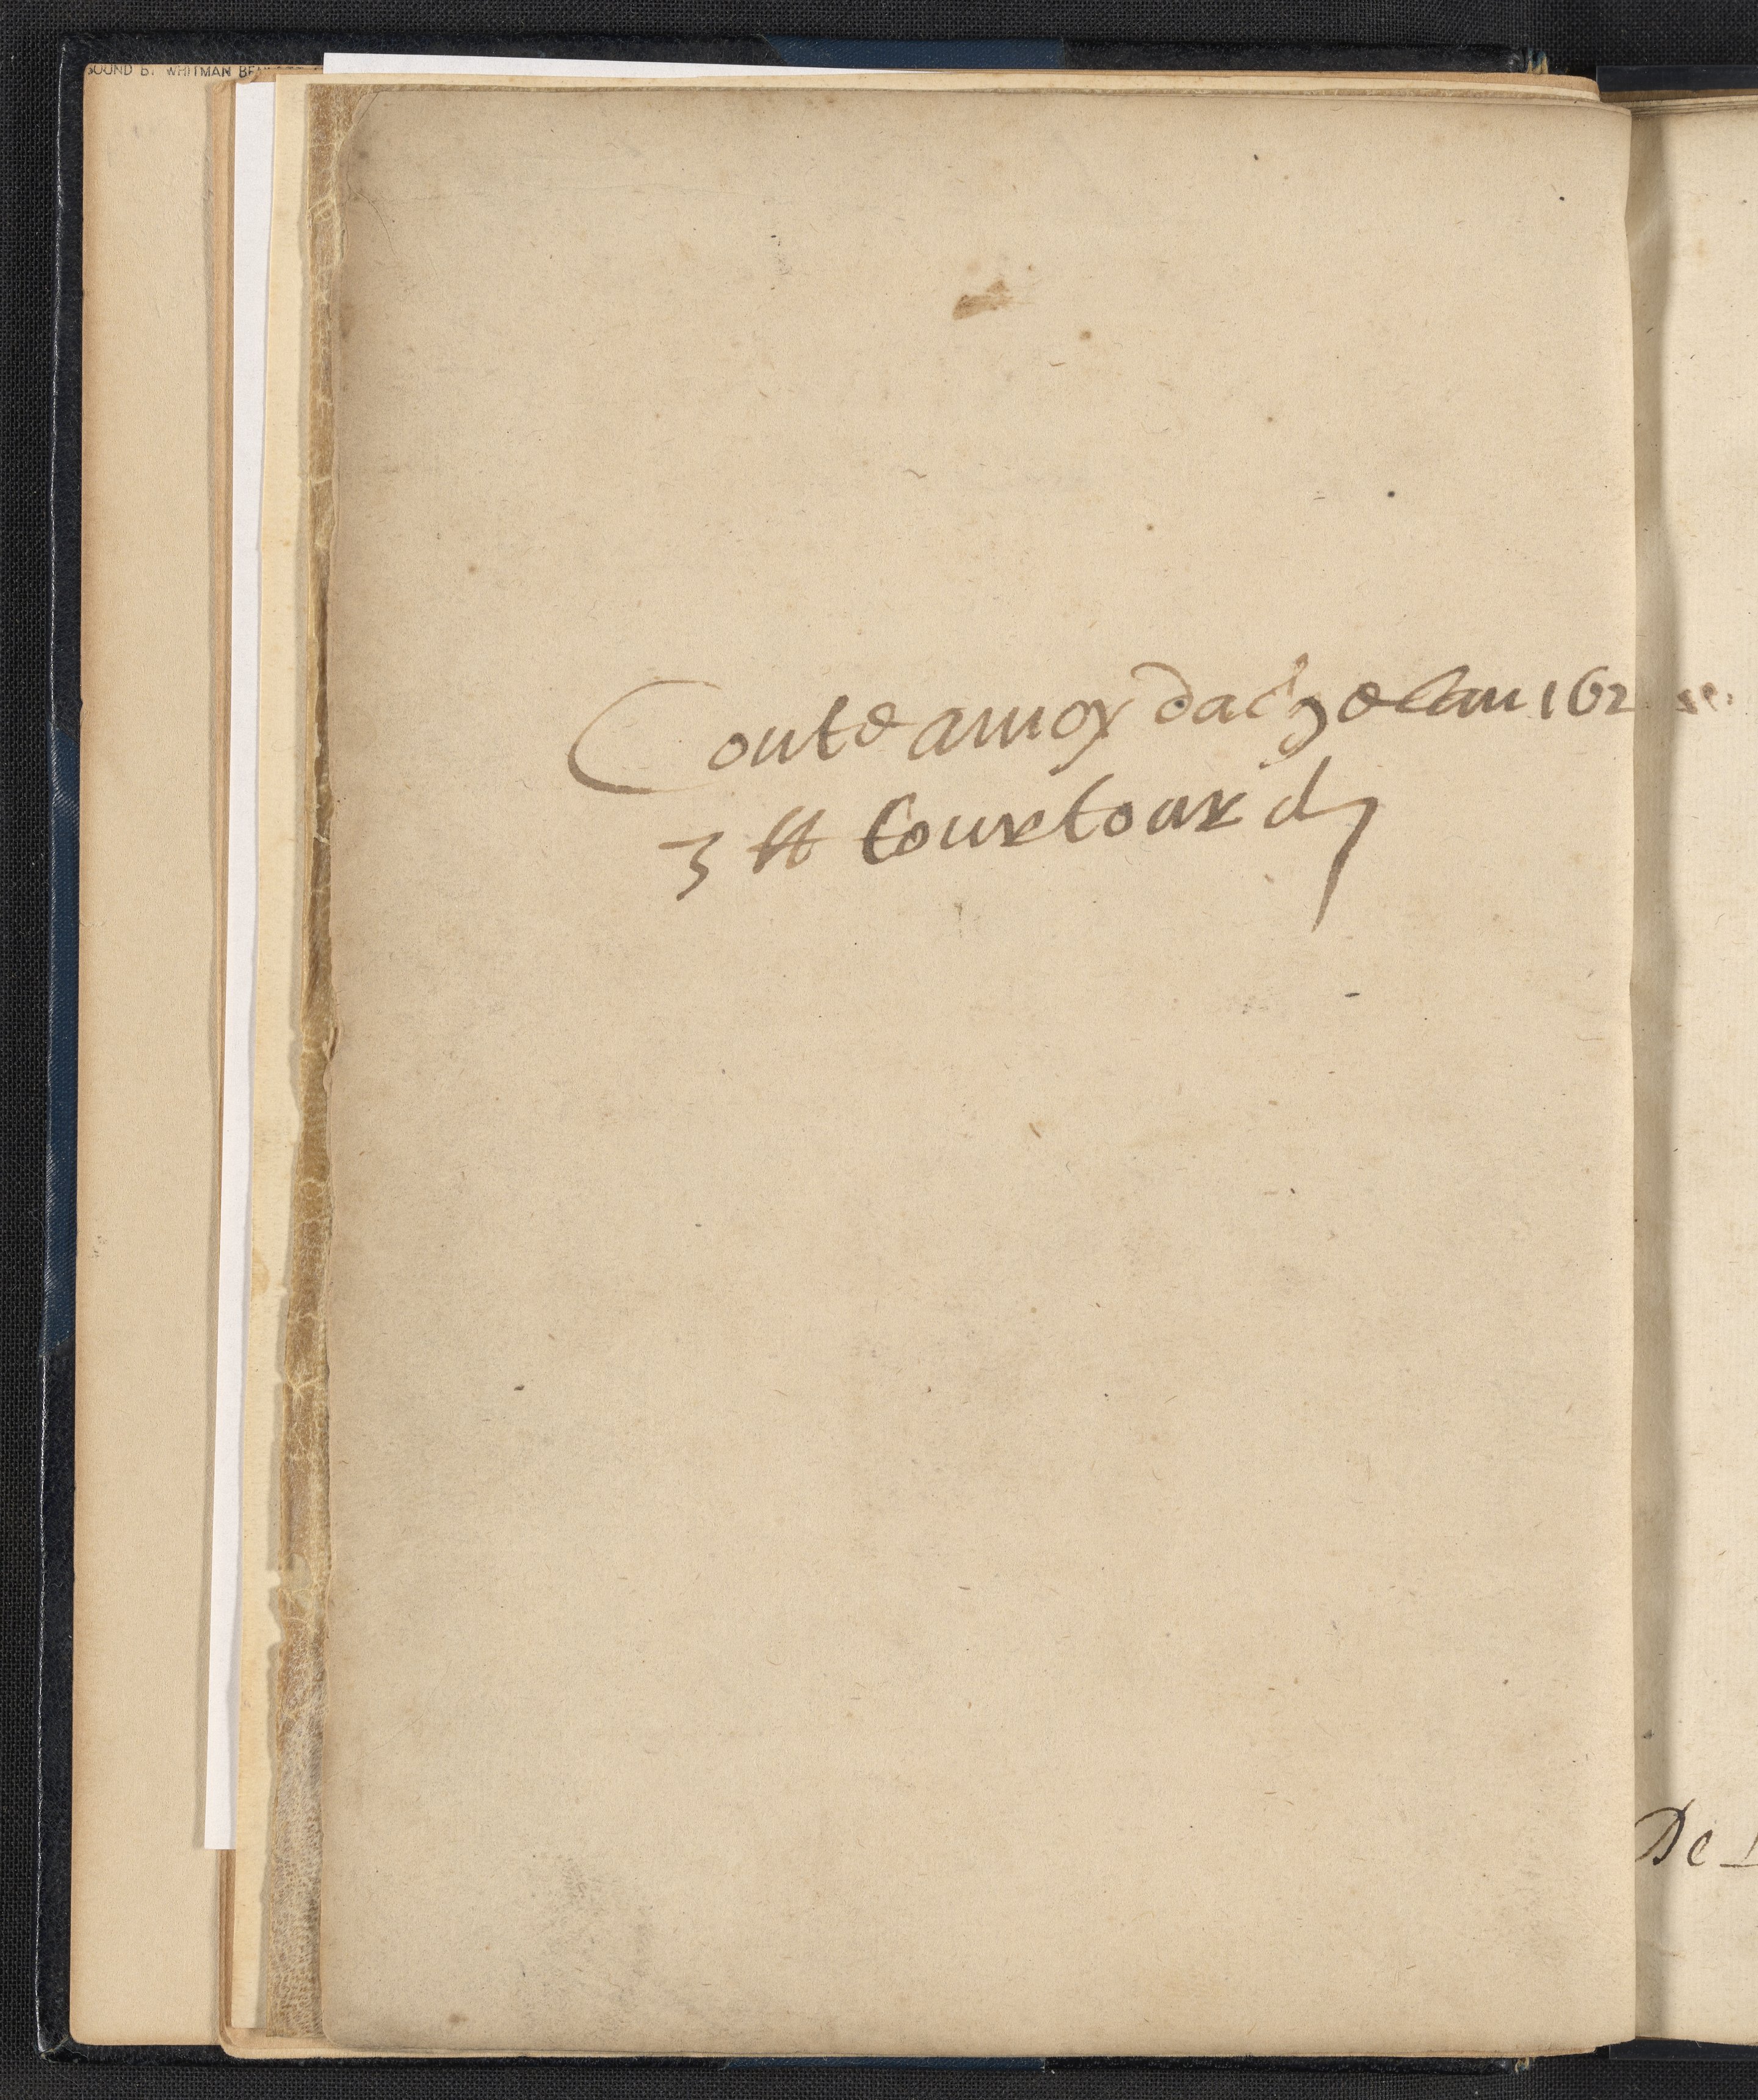 BOUND BY WHITMAN BEN
Coute amoy dach elan 162
3 ₶ tourtour d
De